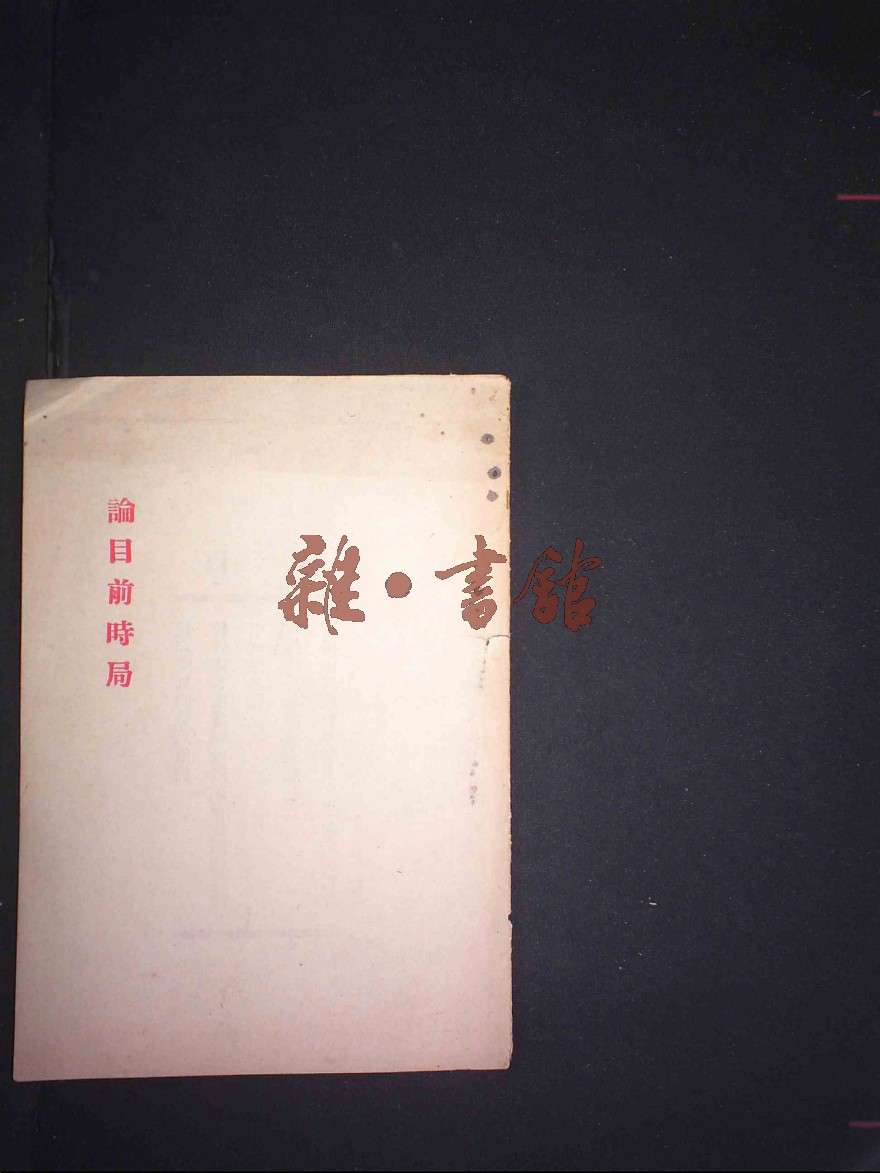 論目前時局
雜•書館